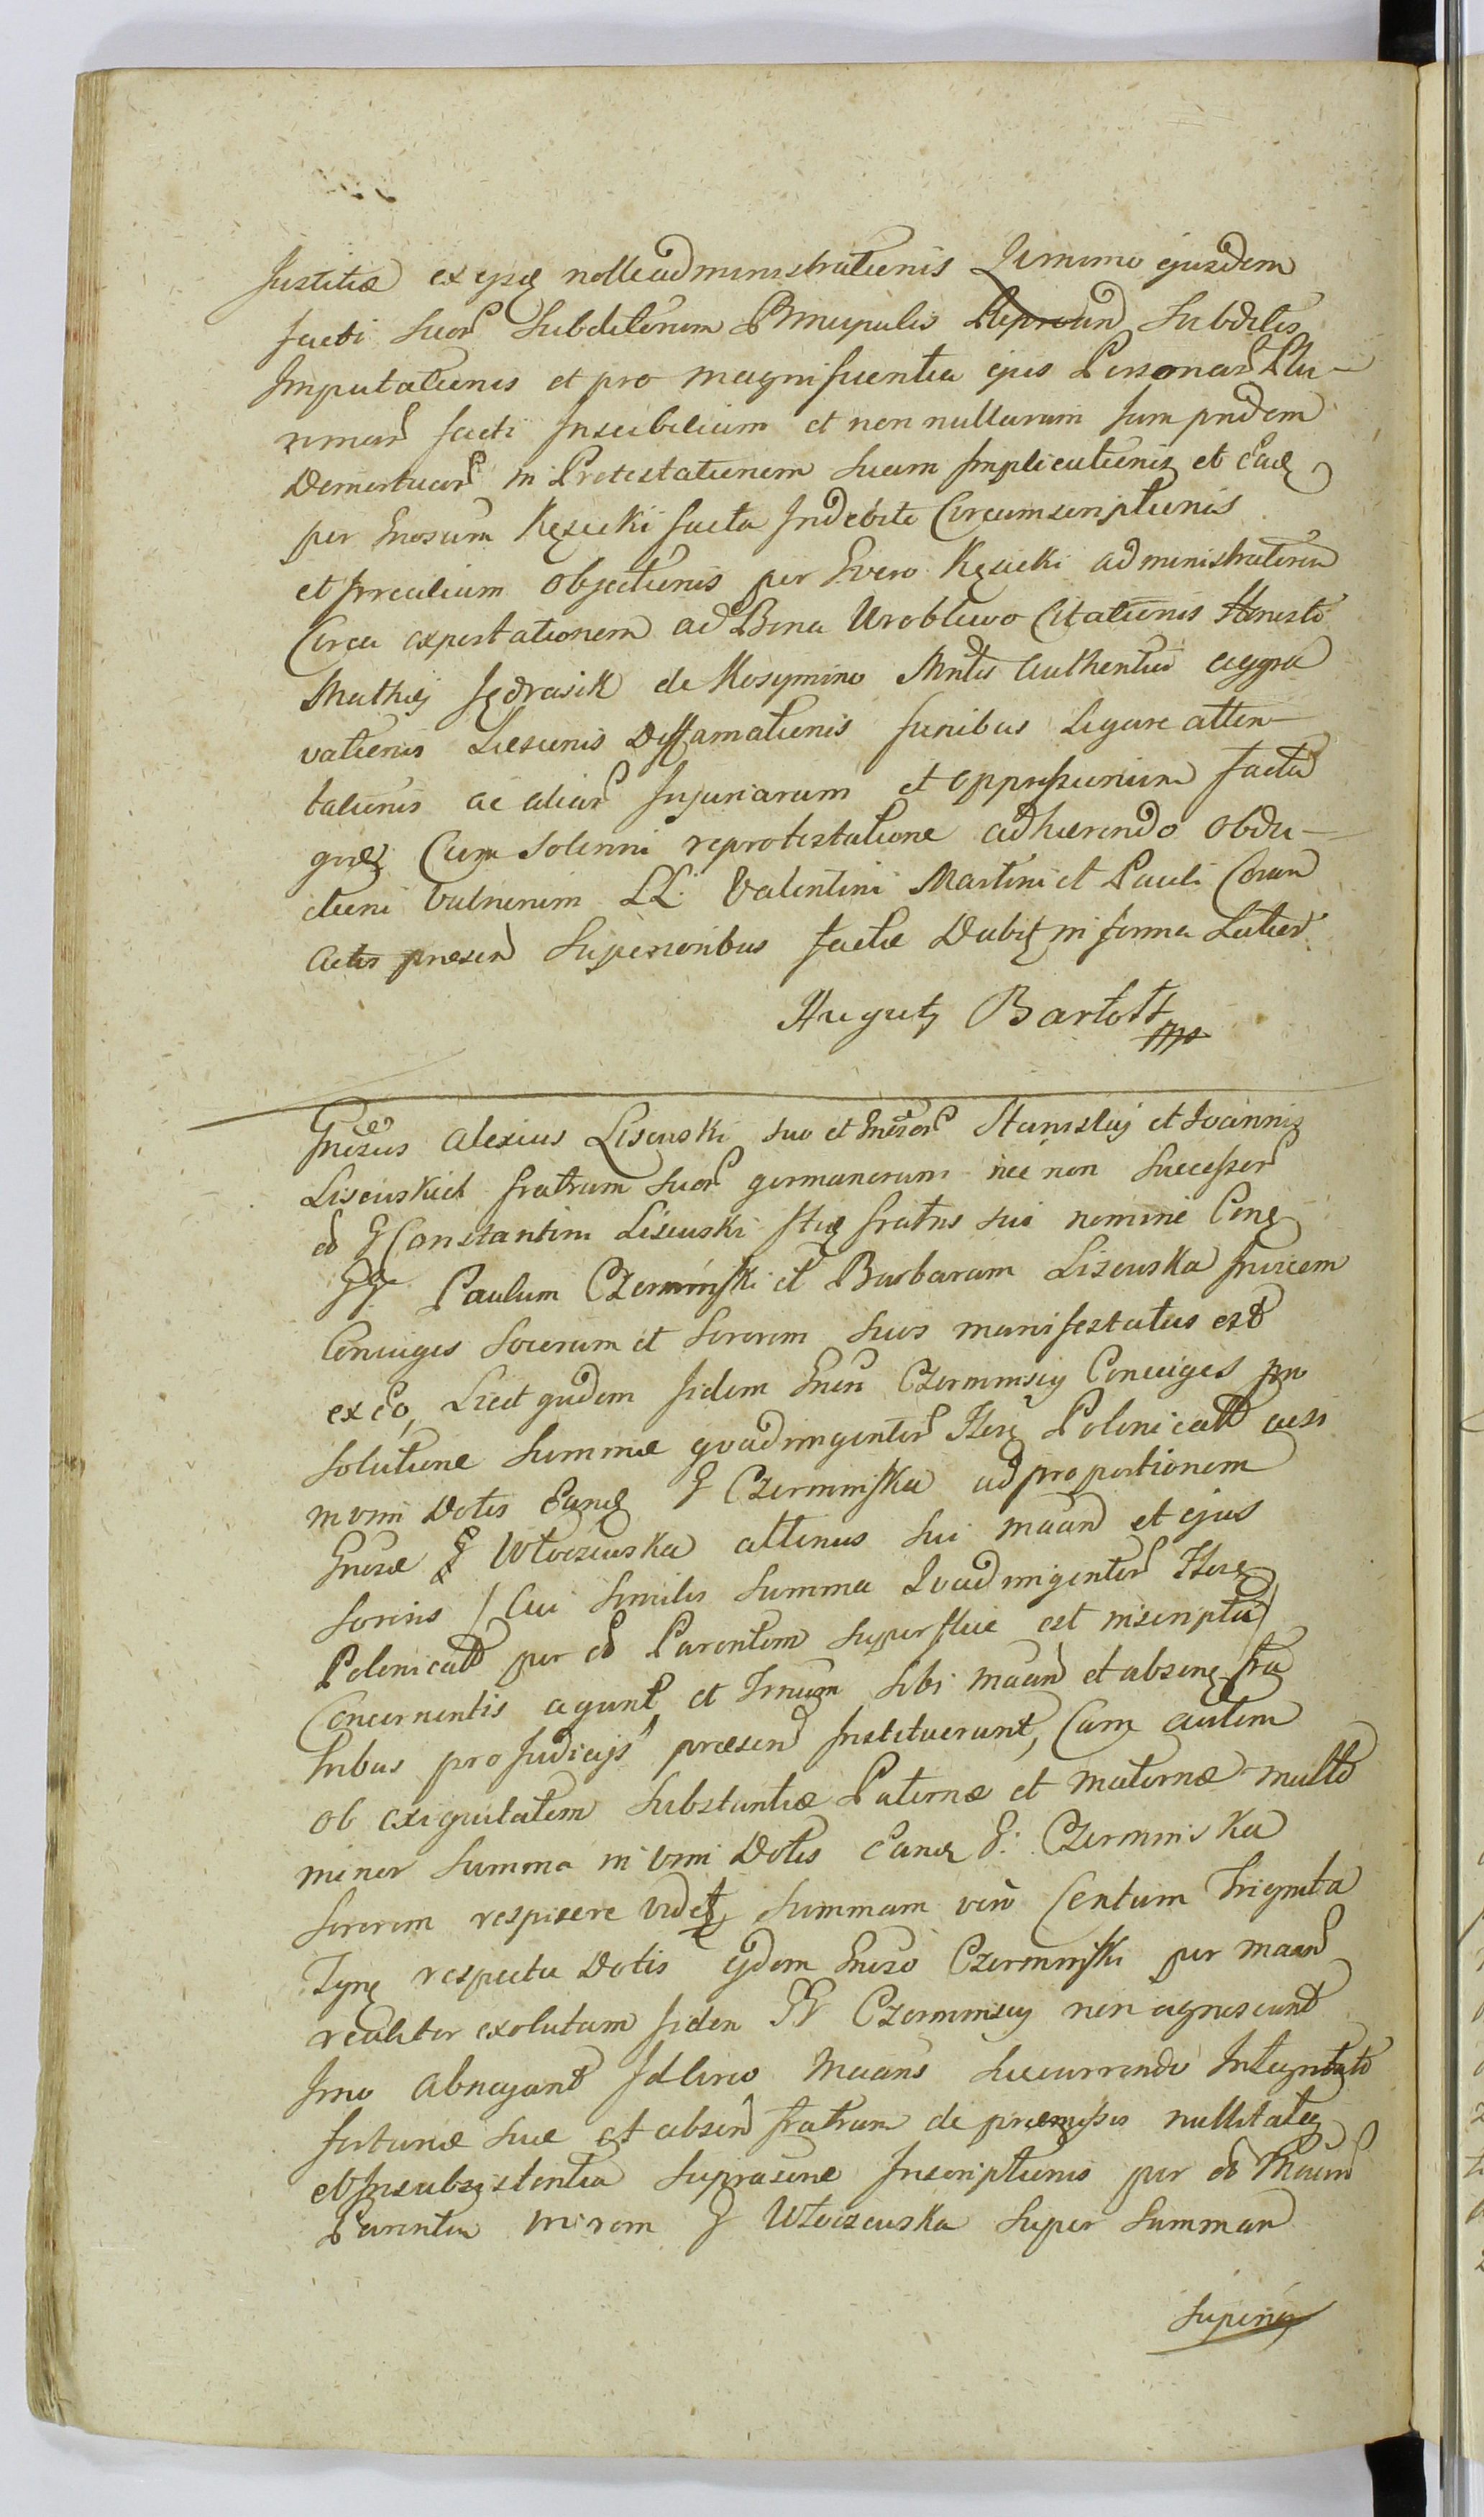 Justitiæ ex ejsq nolleadministrationis Quinimo ejusdem
facti suor Subditorum Principalis Reproand Subditis
Imputationis et pro magnificentia ejus Personar Plu-
rimar facti Inscibilium et non nullarum jam pridem
Demortuar in Protestationem suam Implicationis et Ead
per Gnosum Kęsicki facta Indebite Circumscriptionis
et objectionis per Kęsicki administratorem
Circa exportationem ad Bona Wroblewo Citationis Honesto
Mathiȩ Jędrasik de Kosymino Mntis authentice aggra
vationis Læsionis Diffamationis funibus Ligare atten-
tationis ac aliar Injuriarum et oppressionum facta
Cum Solenni reprotestatione adhærendo obdu-
ctioni Vulnerum LL. Valentini Martini et Pauli Coram
actis præsen Superioribus factæ Dabit in forma Latior
Augusty Bartolt
mp
Gnosus Alexius Lisewski suo et Gnosor Stanislai et Joannis
Lisewskich fratrum suor germanorum nec non Successor
od G Constantini Lisewski fratris sui nomine Cong
GG Paulum Czerminski et Barbaram Lisewska Invicem
Coniuges Sororum et Sororem Suos manifestatus est
ex eo, Licet qudem Jidem Gnosi Czerminscy Coniuges pro
solutione Summæ quadringentor flor Polonicall
in vim Dotis G Czerminska ad proportionem
Gnosæ G Włoczewska attinus sui maan et ejus
Sororis / Cui Similis Summa Quadringentor flor
Polonicall per od Parentem Superflue est inscripta /
Concernentis agunt et Trnum sibi maan et absenq fra
tribus pro Judicijs præsen Instituerunt, Cum autem
ob exiguitatem Substantiæ Paternæ et maternæ multo
minor Summa in vim Dotis G. Czerminska
Sororem respicere videt, Summam vero Centum Triginta
Tynf respectu Dotis ejdem Gnoso Czerminski per maan
realiter exolutam Jidem GG Czerminscy non agnoscunt
Imo abnegant Idcirco Maans Succurrendo Integritati
fortunæ suæ et absen fratrum de præmissis nullitate
et Insubsistentia Inscriptionis per od Maan
Parentem in rem G Włoczewska Super Summam
Superius